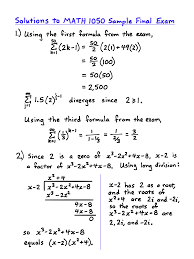 Solutions to MATH 1050 Sample Final Exam
1.) Using the first formula from the exam,
50 ∑ k=1 (2k-1) = 50/2 (2(1)+49(2))
= 50/2 (100)
= 50(50)
= 2,500
∞ ∑ k=1 1.5(2)^(k-1) diverges since 2≥1.
Using the third formula from the exam,
∞ ∑ k=1 (1/3)^(k-1) = 1/(1-1/3) = 1/(2/3) = 3/2
2.) Since 2 is a zero of x³-2x²+4x-8, x-2 is
a factor of x³-2x²+4x-8. Using long division:
x²+4
x-2 | x³-2x²+4x-8
x³-2x²
4x-8
4x-8
0
so x³-2x²+4x-8
equals (x-2)(x²+4)
x-2 has 2 as a root,
and the roots of
x²+4 are 2i and -2i,
so the roots of
x³-2x²+4x-8 are
2, 2i, and -2i.